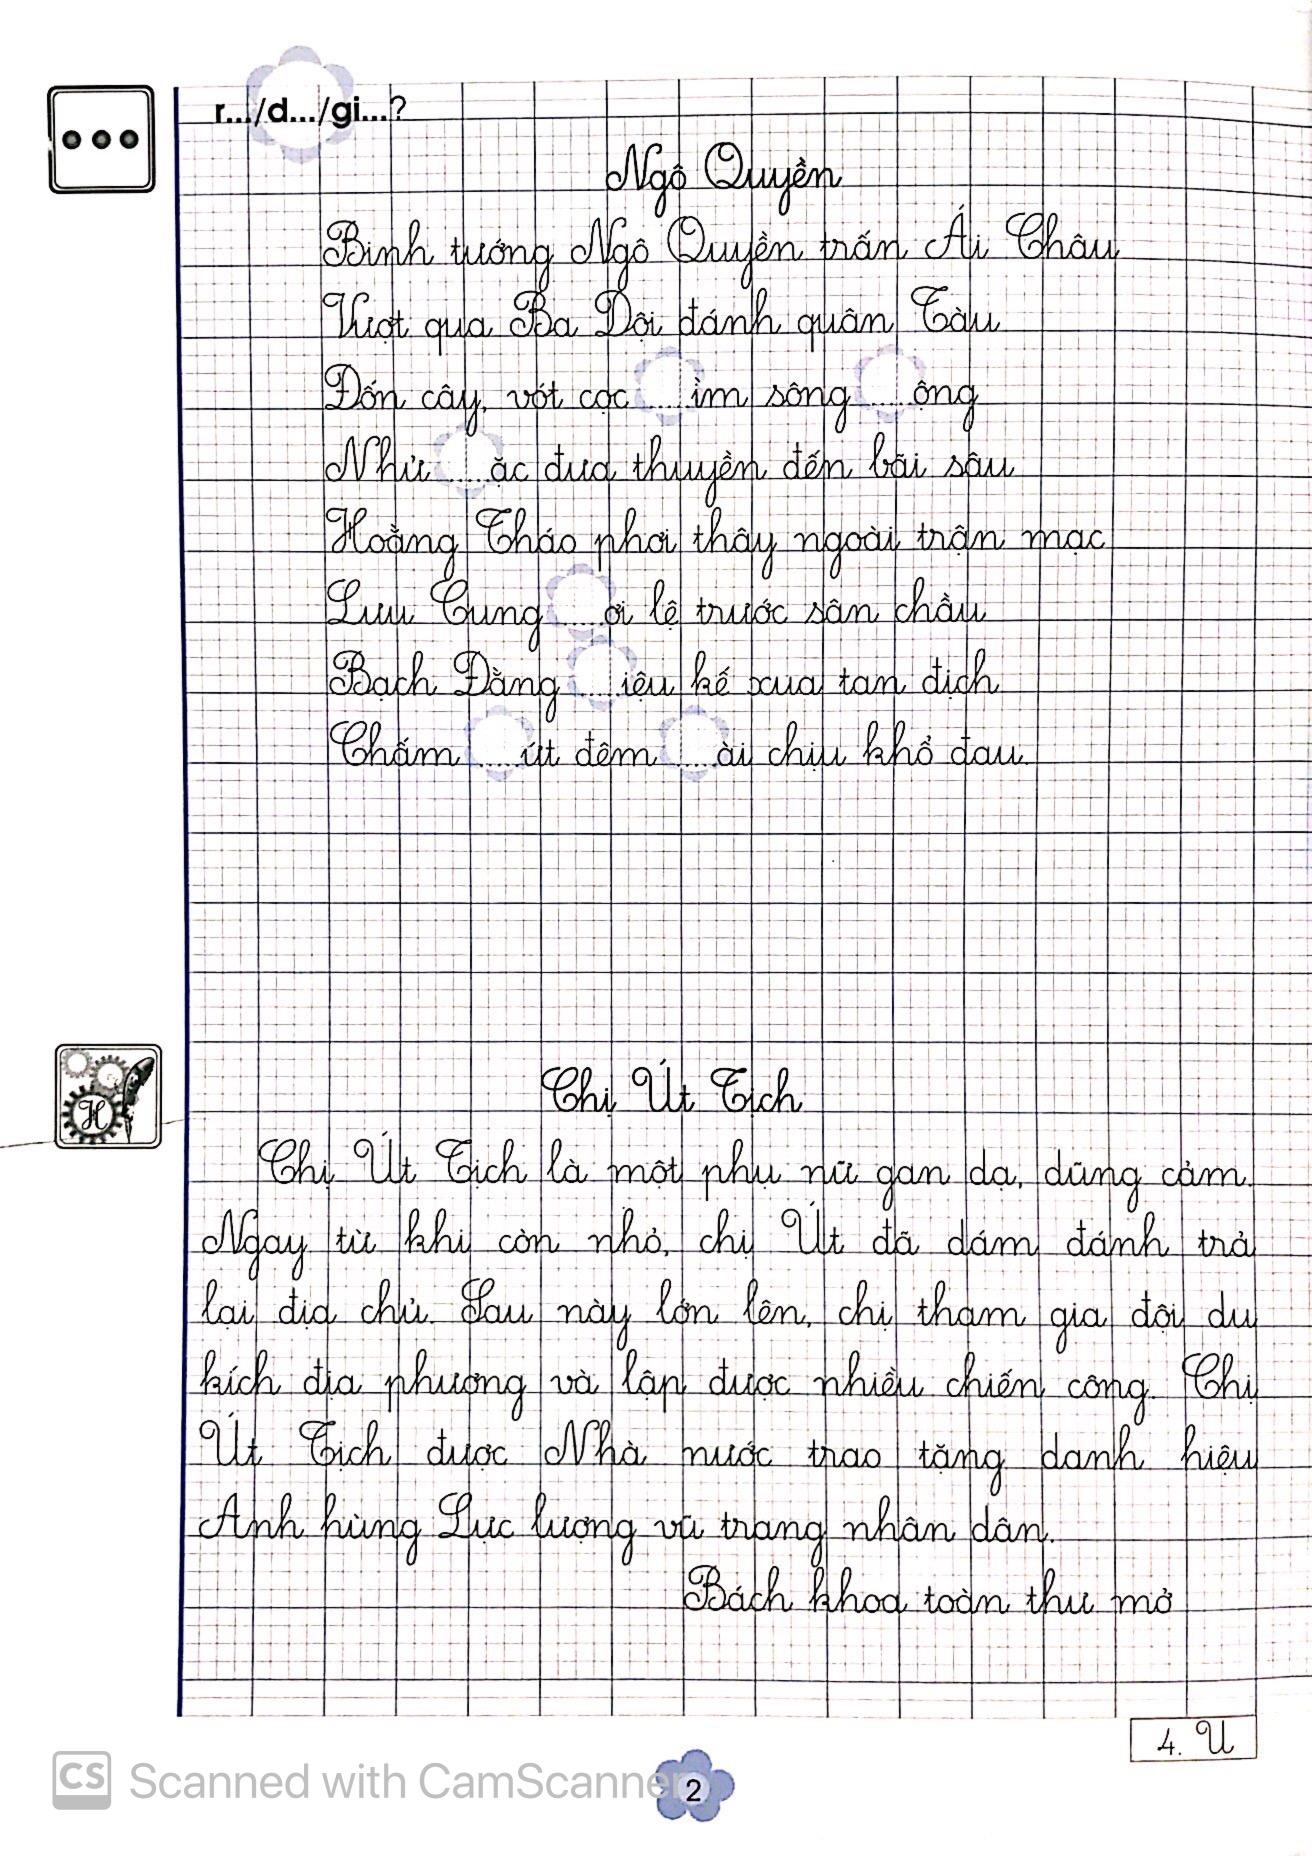 r.../d.../gi...?
Ngô Quyền
Binh tướng Ngô Quyền trấn Ái Châu
Vượt qua Ba Dội đánh quân Tàu
Đốn cây, vót cọc .....ìm sông .....ộng
Nhử .....ặc đưa thuyền đến bãi sâu
Hoằng Tháo phơi thây ngoài trận mạc
Lưu Cung .....ơi lệ trước sân chầu
Bạch Đằng .....iệu kế xưa tan địch
Chấm .....ứt đêm .....ài chịu khổ đau.
H
Chị Út Tịch
Chị Út Tịch là một phụ nữ gan dạ, dũng cảm.
Ngay từ khi còn nhỏ, chị Út đã dám đánh trả
lại địa chủ. Sau này lớn lên, chị tham gia đội du
kích địa phương và lập được nhiều chiến công. Chị
Út Tịch được Nhà nước trao tặng danh hiệu
Anh hùng Lực lượng vũ trang nhân dân.
Bách khoa toàn thư mở
4. U
CS Scanned with CamScanner
2